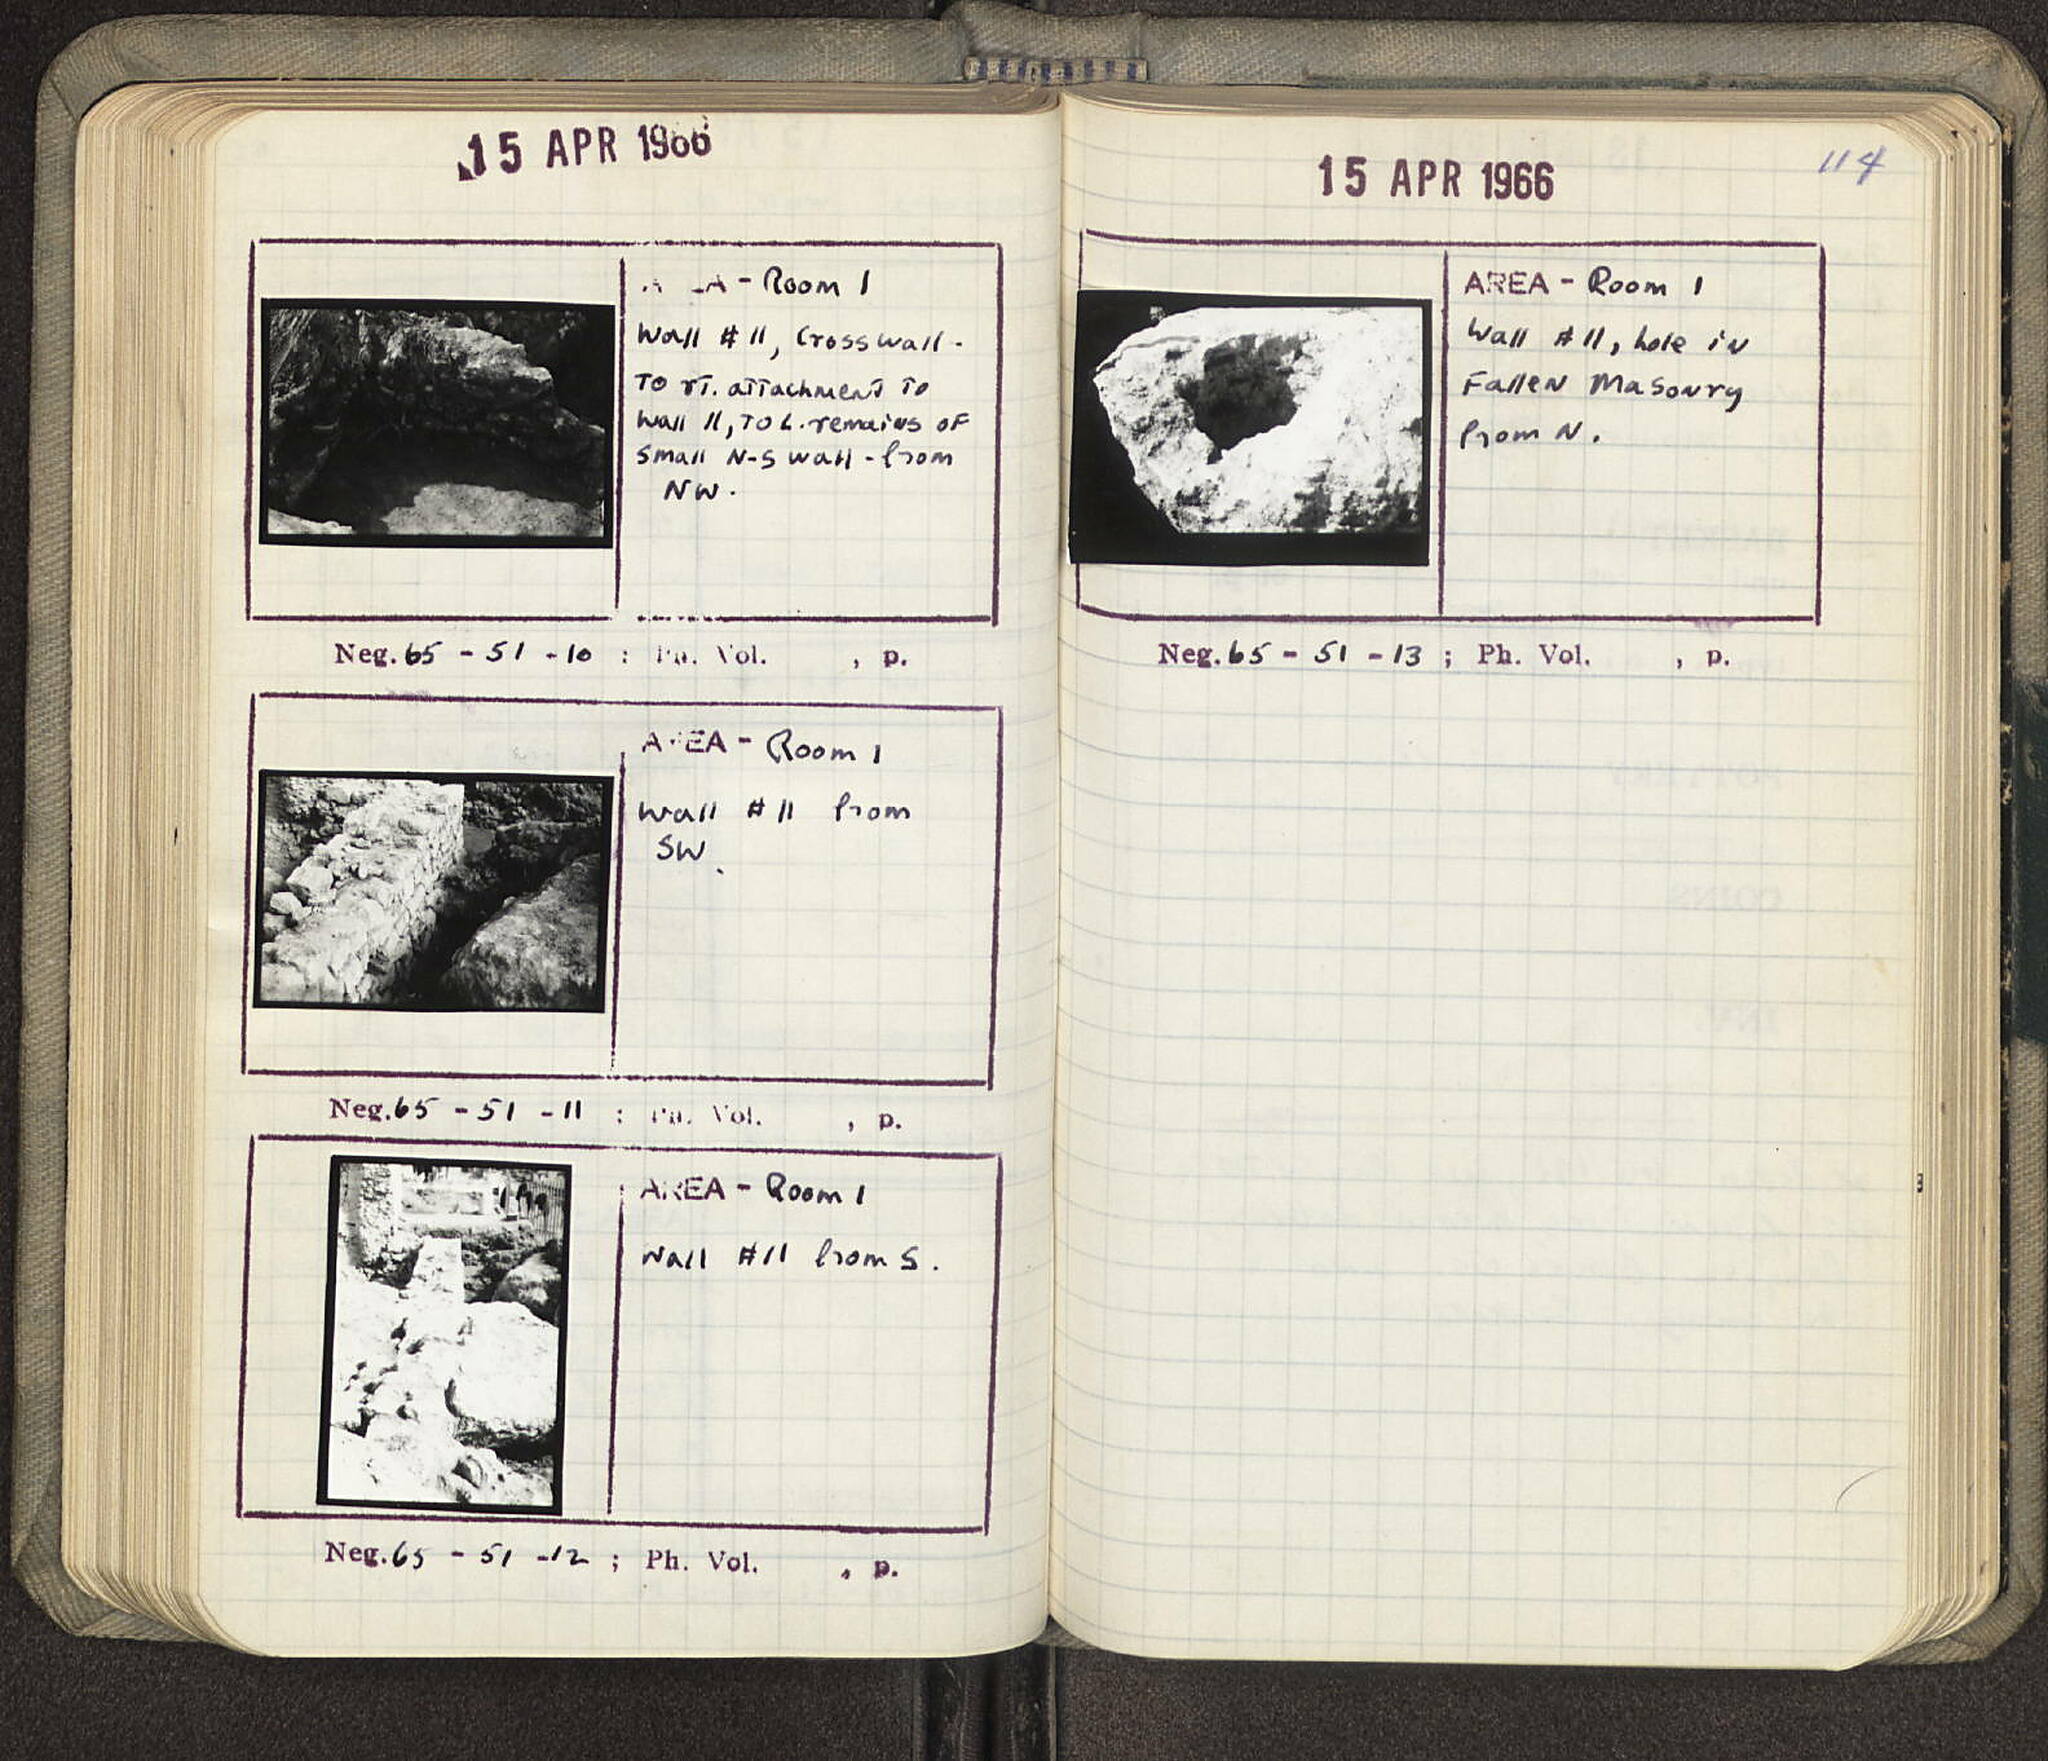 15 APR 1966
AREA - Room 1
Wall #11, Crosswall -
TO rT. attachment TO
Wall 11, TO L. remains OF
Small N-S wall - from
NW.
Neg. 65 - 51 - 10 ; Ph. Vol. , p.
AREA - Room 1
Wall #11 from
SW.
Neg. 65 - 51 - 11 ; Ph. Vol. , p.
AREA - Room 1
Wall #11 from S.
Neg. 65 - 51 - 12 ; Ph. Vol. , p.
15 APR 1966
114
AREA - Room 1
Wall #11, hole in
Fallen Masonry
from N.
Neg. 65 - 51 - 13 ; Ph. Vol. , p.